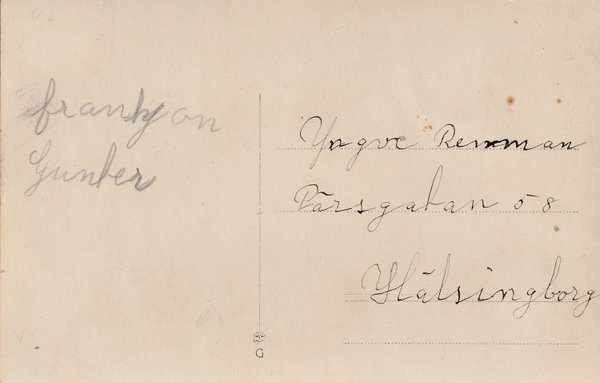 frankjon
Gunber
Yngve Renman
Pärsgatan 58
Hälsingborg
G